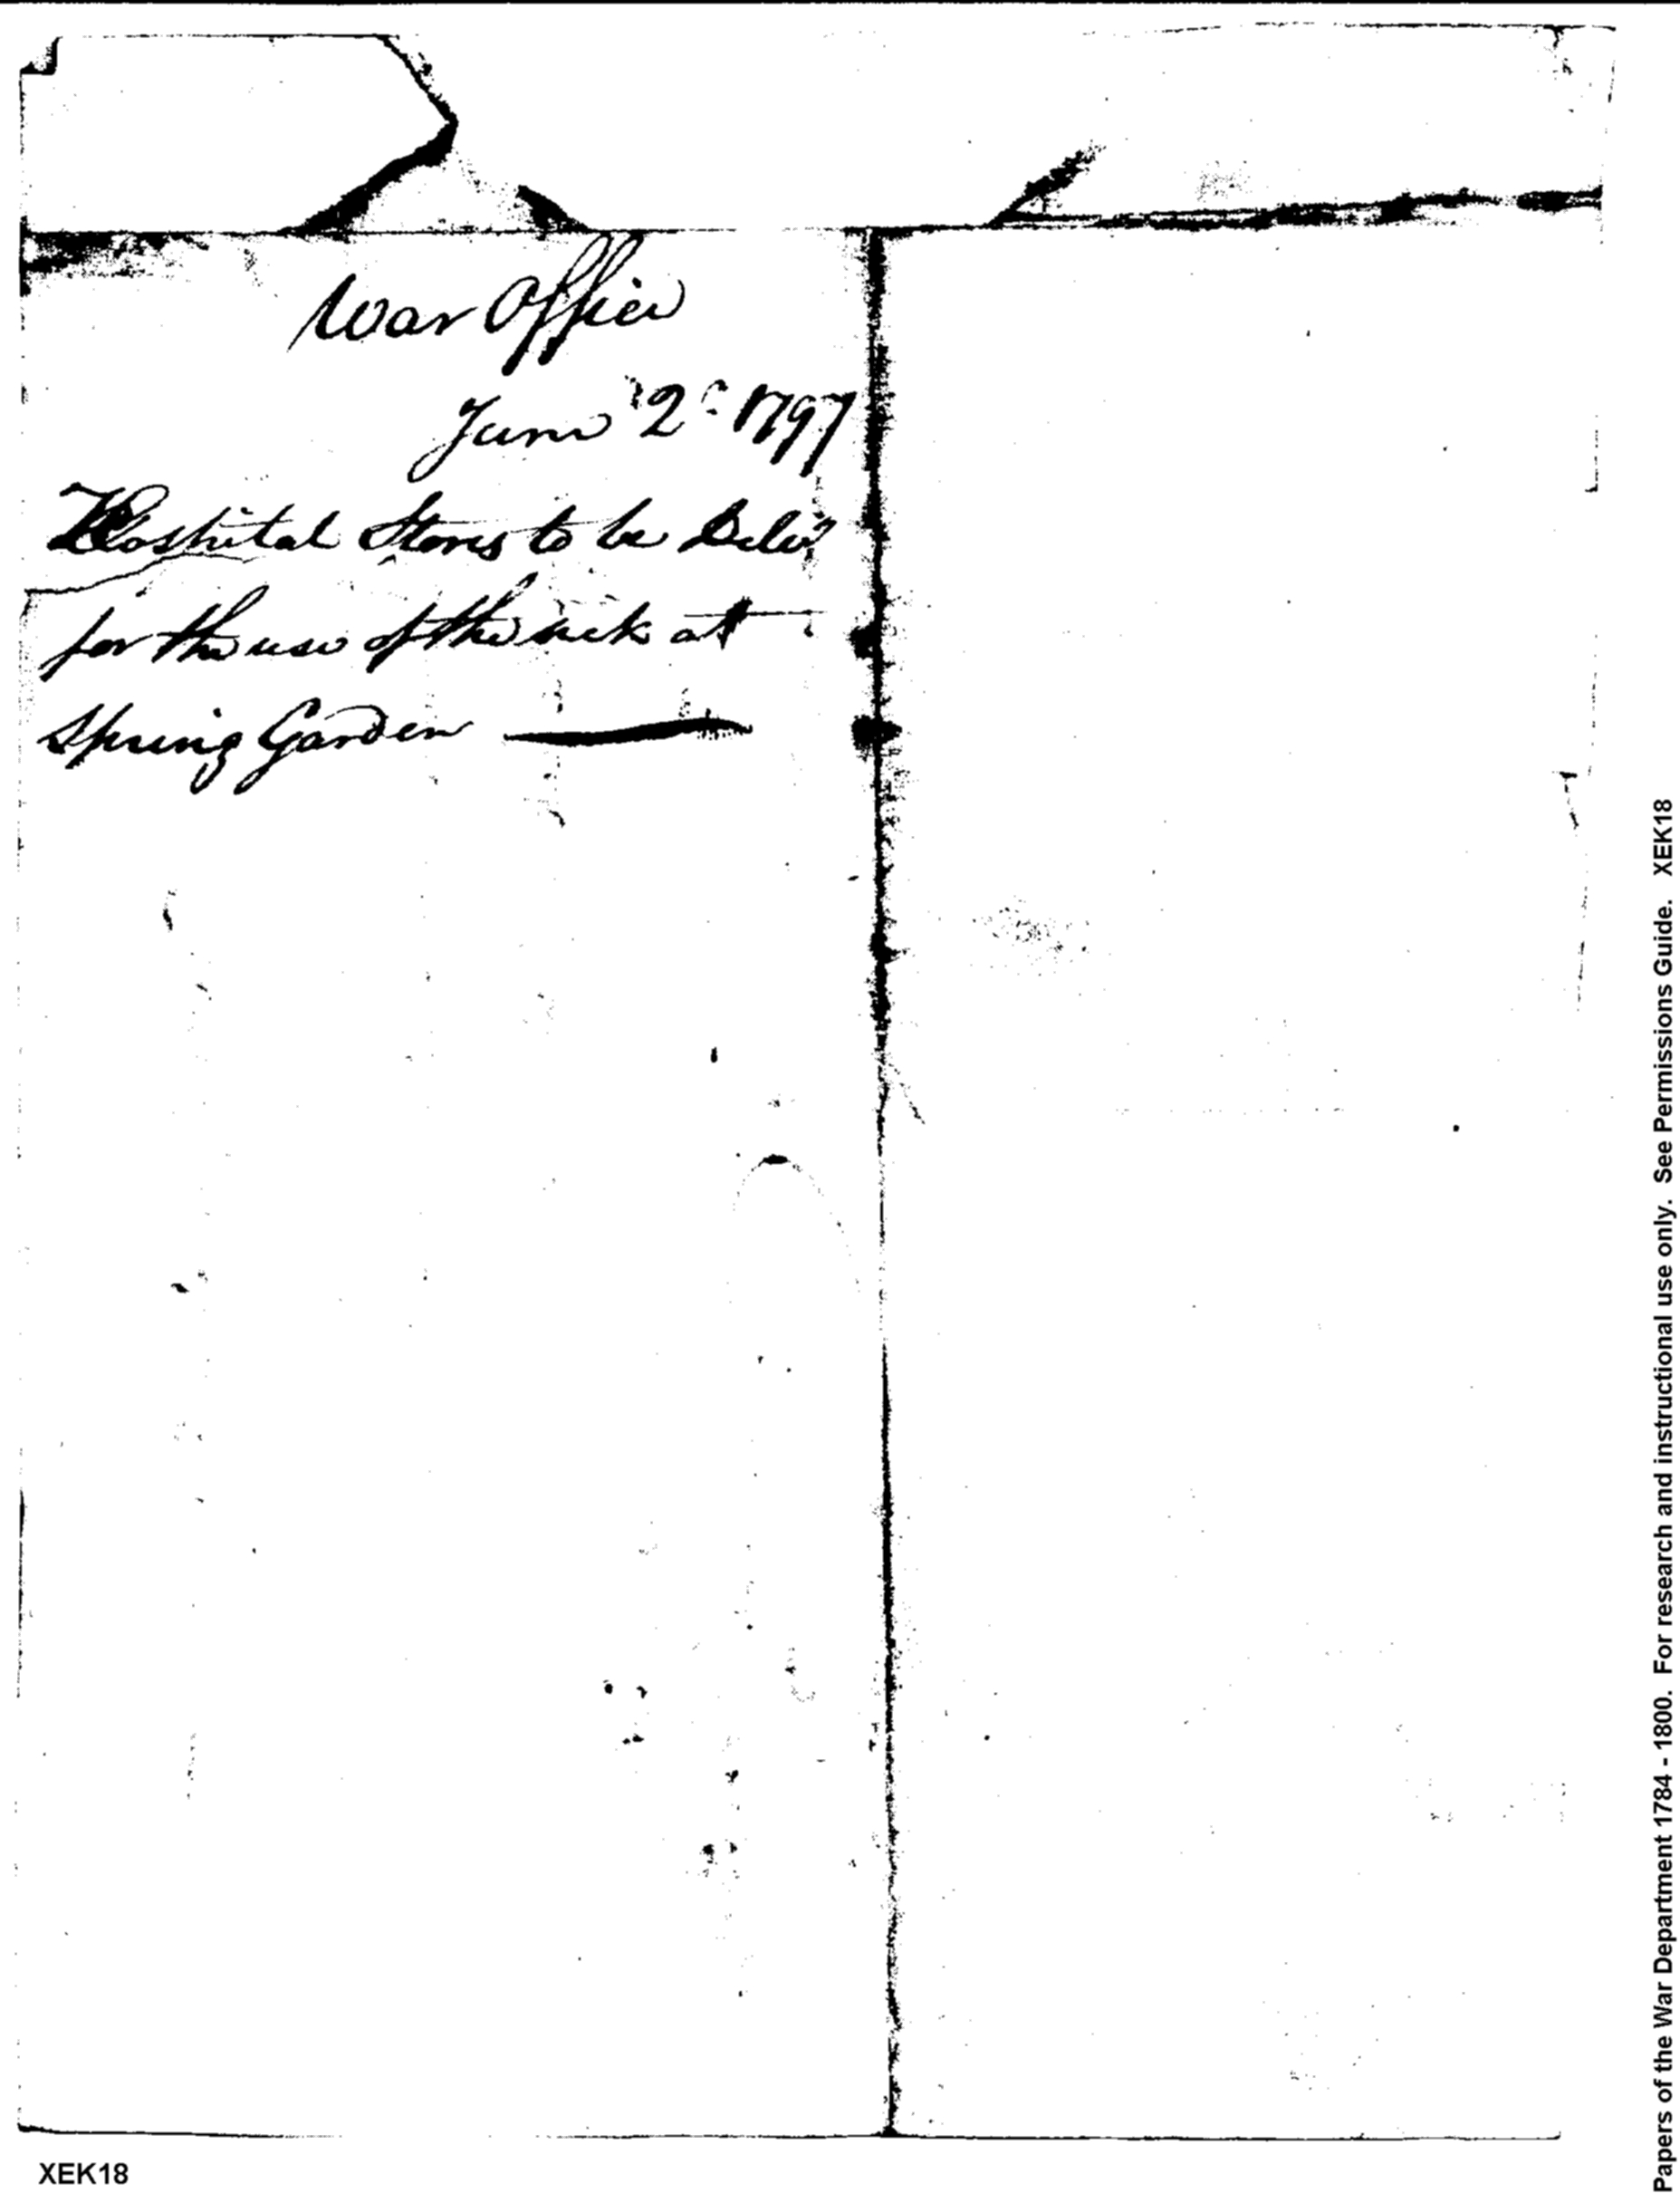 War Office
June 2d 1797
Hospital Stores to be Delivd
for the use of the sick at
Spring Garden
XEK18
Papers of the War Department 1784 - 1800. For research and instructional use only. See Permissions Guide. XEK18